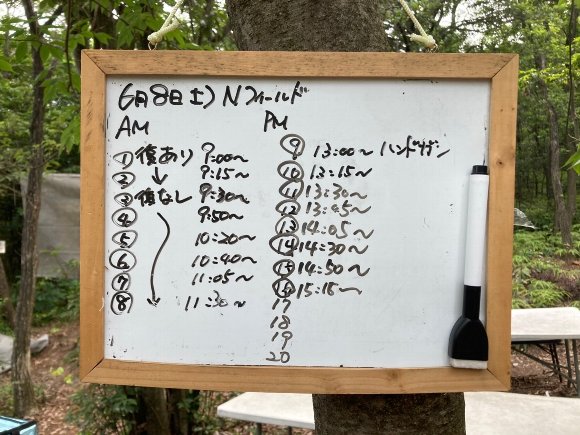 6月8日(土) Nフィールド
AM
① 復あり 9:00～
② ↓ 9:15～
③ 復なし 9:30～
④ 9:50～
⑤ 10:20～
⑥ 10:40～
⑦ 11:05～
⑧ 11:30～
PM
⑨ 13:00～ ハンドガン
⑩ 13:15～
⑪ 13:30～
⑫ 13:45～
⑬ 14:05～
⑭ 14:30～
⑮ 14:50～
⑯ 15:15～
17
18
19
20